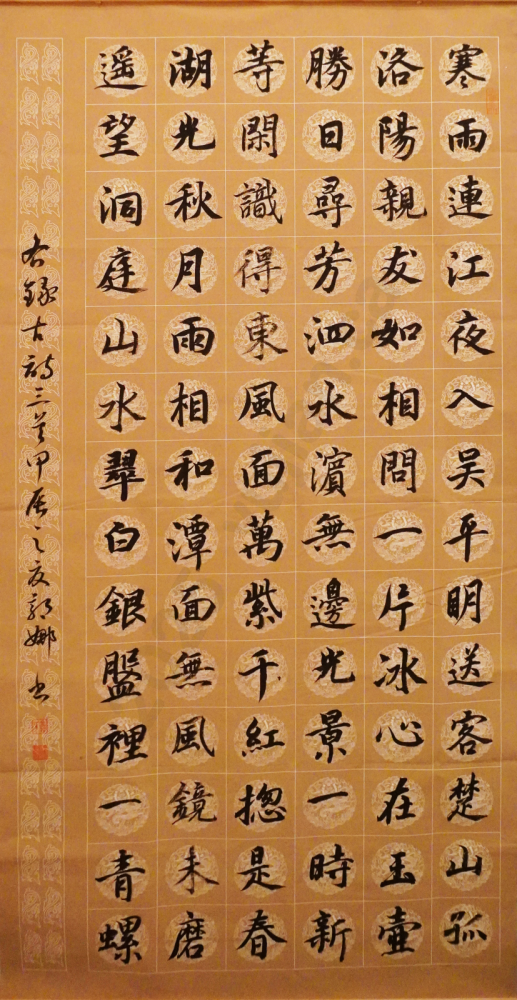 寒雨連江夜入吴平明送客楚山孤
洛陽親友如相問一片冰心在玉壺
勝日尋芳泗水濱無邊光景一時新
等閑識得東風面萬紫千紅揔是春
湖光秋月雨相和潭面無風鏡未磨
遥望洞庭山水翠白銀盤裡一青螺
右錄古詩三首甲辰之夏郭娜書